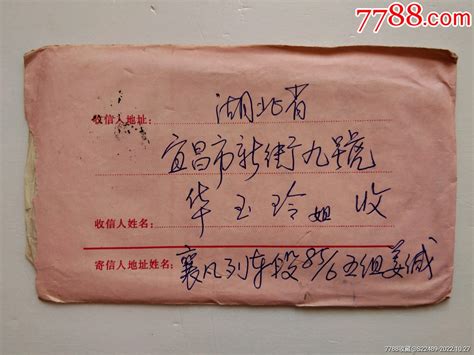 7788.com
收信人地址: 湖北省
宜昌市新街九號
华玉玲姐收
收信人姓名:
寄信人地址姓名: 襄凡列车段85/6五组姜缄
7788收藏@S22489-2022.10.27